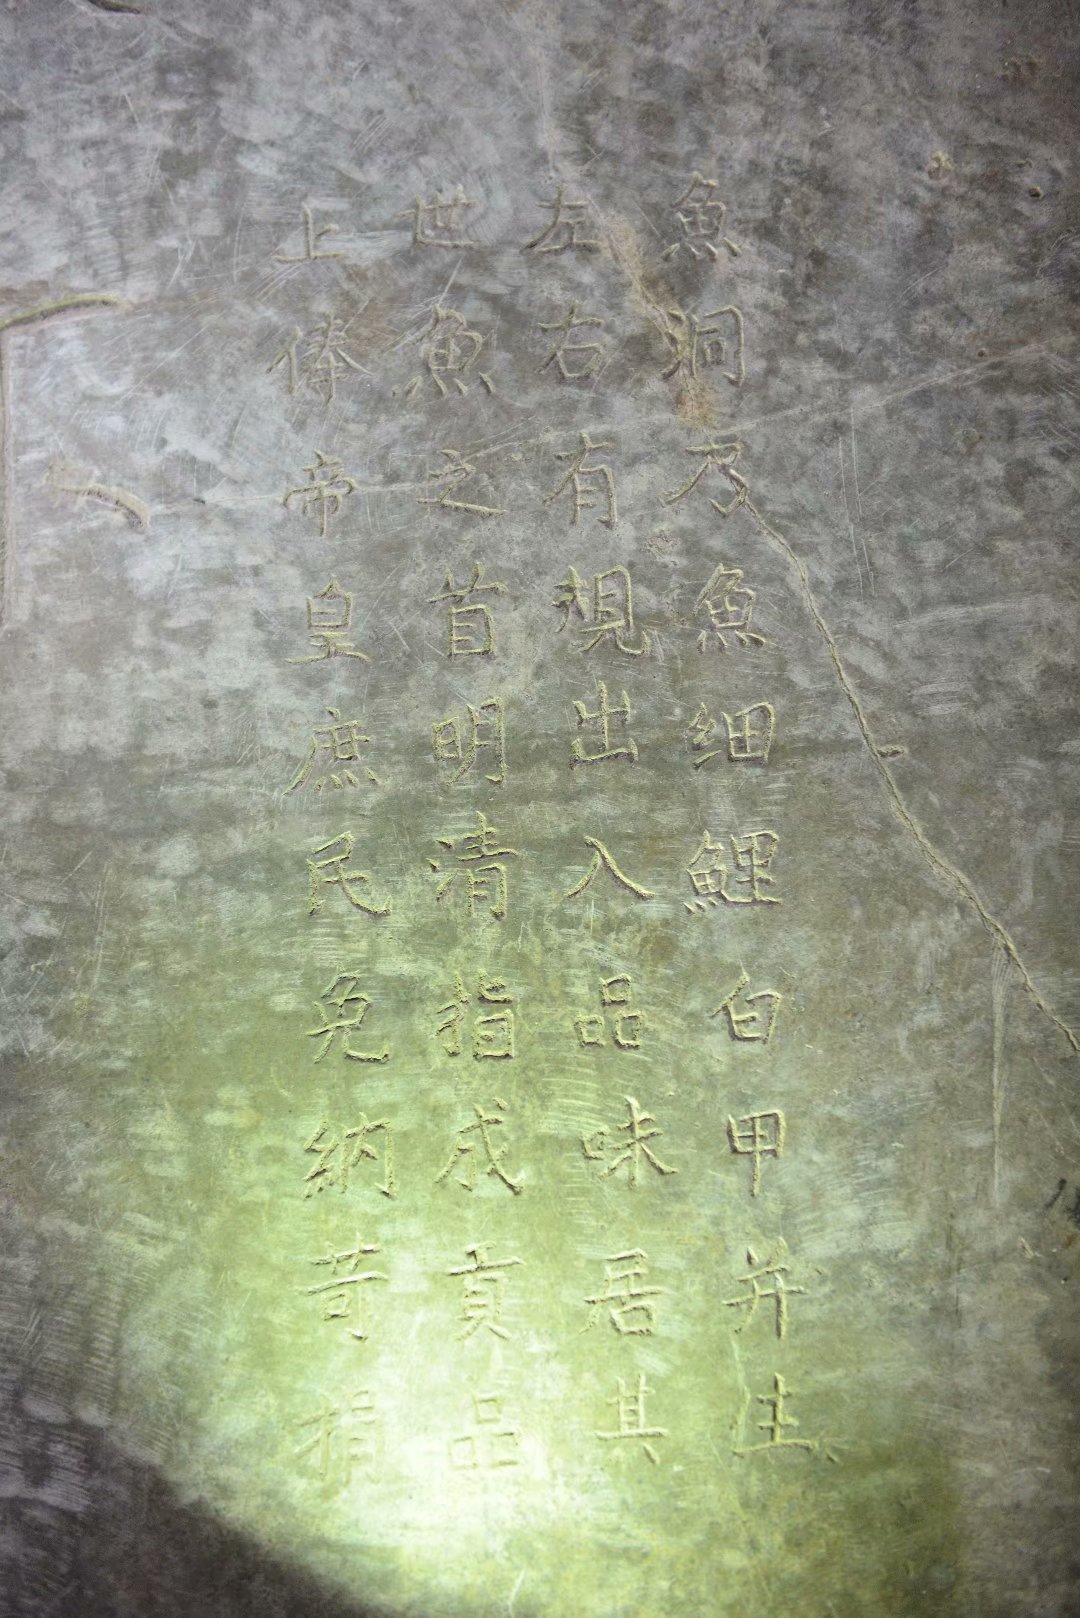 魚洞乃魚細鯉白甲并注
左右有規出入品味居其
世魚之首明清指成貢品
上俸帝皇庶民免納苛捐